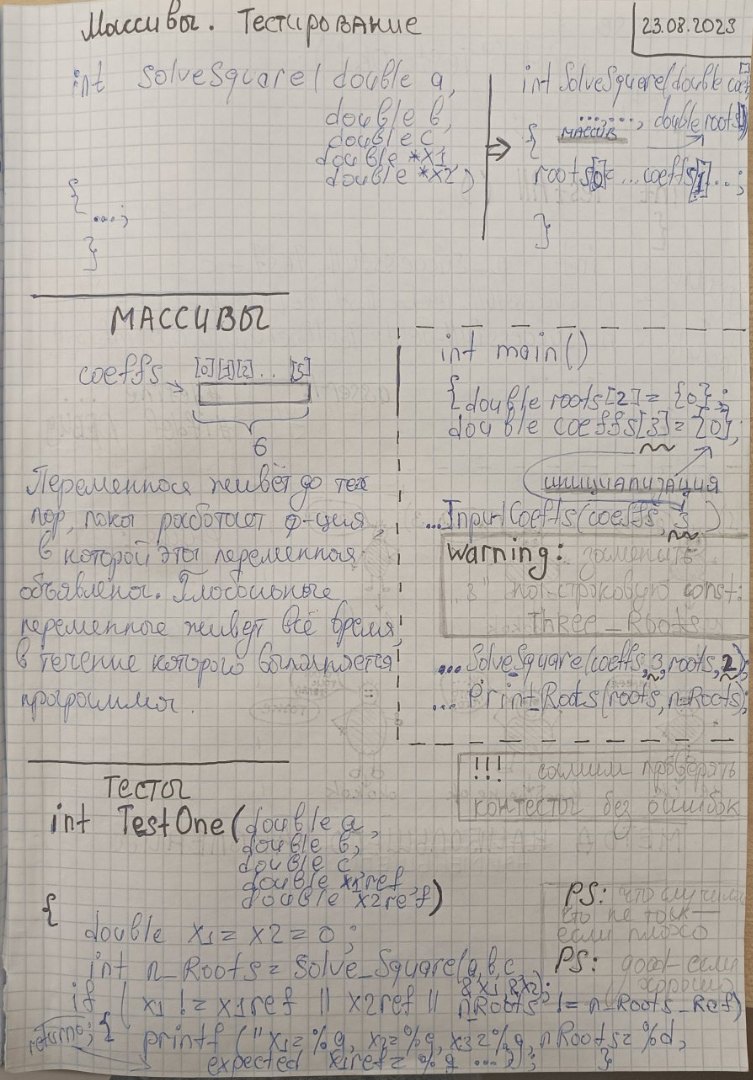 Массивы. Тестирование
23.08.2023
int SolveSquare( double a,
double b,
double c
double *x1
double *x2)
{
...;
}
⇒
int SolveSquare(double coef[]
......, double roots[])
{ массив
roots[0]< ... coeffs[1]...;
}
МАССИВЫ
coeffs → [0][1][2] . . [5]
6
Переменная живёт до тех
пор, пока работает ф-ция,
в которой эта переменная
объявлена. Глобальные
переменные живут всё время,
в течение которого выполняется
программа.
int main()
{ double roots[2] = {0};
double coeffs[3] = {0};
инициализация
...InputCoeffs(coeffs, 3 )
Warning: заменить
"3" const:
Three_Roots
... SolveSquare(coeffs,3,roots,2);
... Print_Roots(roots, n_Roots);
!!! самим проверять
контесты без ошибок
Тесты
int TestOne(double a,
double b,
double c
double x1ref
double x2ref)
{
double x1 = x2 = 0;
int n_Roots = Solve_Square(a,b,c
&x1,&x2);
if ( x1 != x1ref || x2ref || nRoots != n_Roots_Ref)
return; { printf ("x1=%g, x2=%g, x3=%g, nRoots=%d,
expected x1ref= %g ... ); }
PS: что случилось
что не так—
если плохо
PS: good-если
хорошо